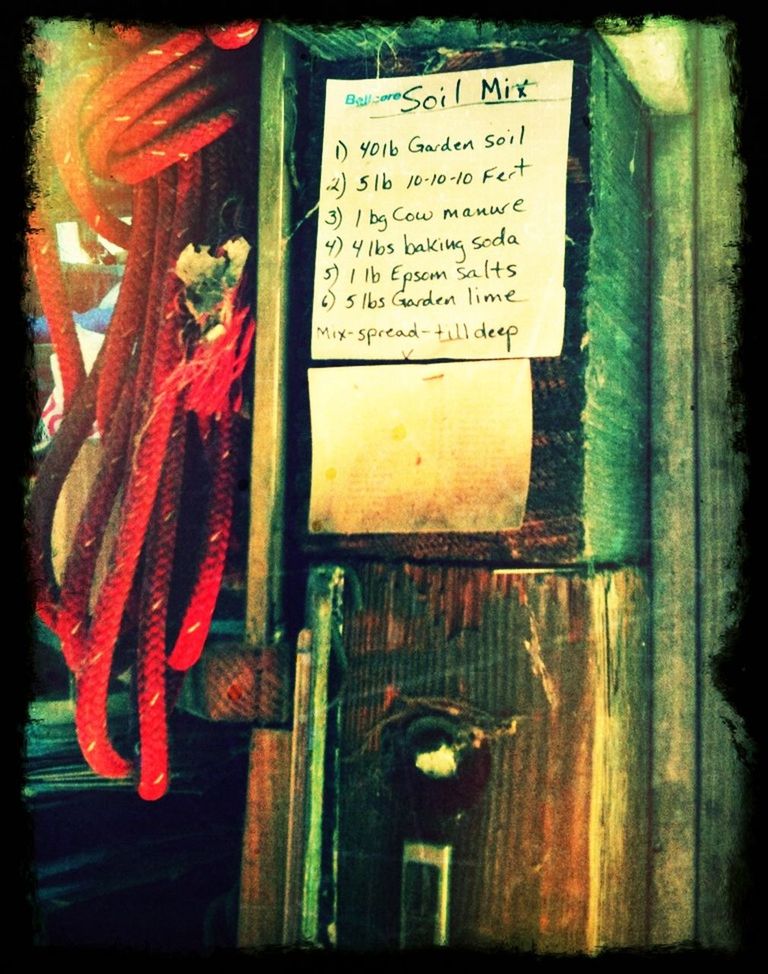 Bellcore Soil Mix
1) 40lb Garden soil
2) 5lb 10-10-10 Fert
3) 1 bg Cow manure
4) 4 lbs baking soda
5) 1 lb Epsom salts
6) 5 lbs Garden lime
Mix-spread-till deep